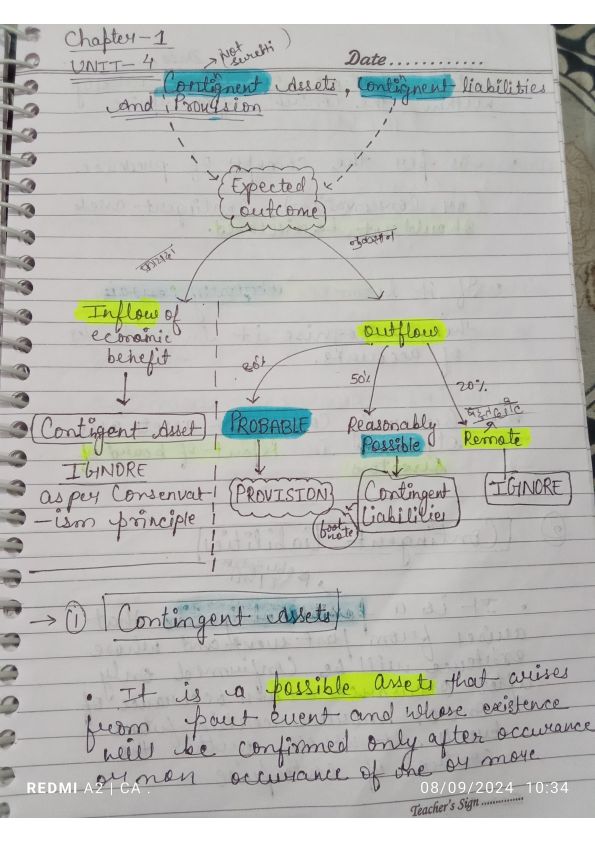 Chapter-1
UNIT-4
→ Not
suretti )
Date............
Contignent Assets, Contignent liabilities
And Provision
Expected
outcome
फायदा
नुकसान
Inflow of
economic
benefit
Outflow
50%
20%
Contigent Asset
PROBABLE
Reasonably
Possible
Remote
IGNORE
as per Conservat-
-ism principle
PROVISION
foot
note
Contingent
liabilities
IGNORE
→ (i) Contingent Assets
• It is a possible assets that arises
from past event and whose existence
will be confirmed only after occurance
or non occurance of one or more
REDMI A2 | CA .
08/09/2024 10:34
Teacher's Sign ...............